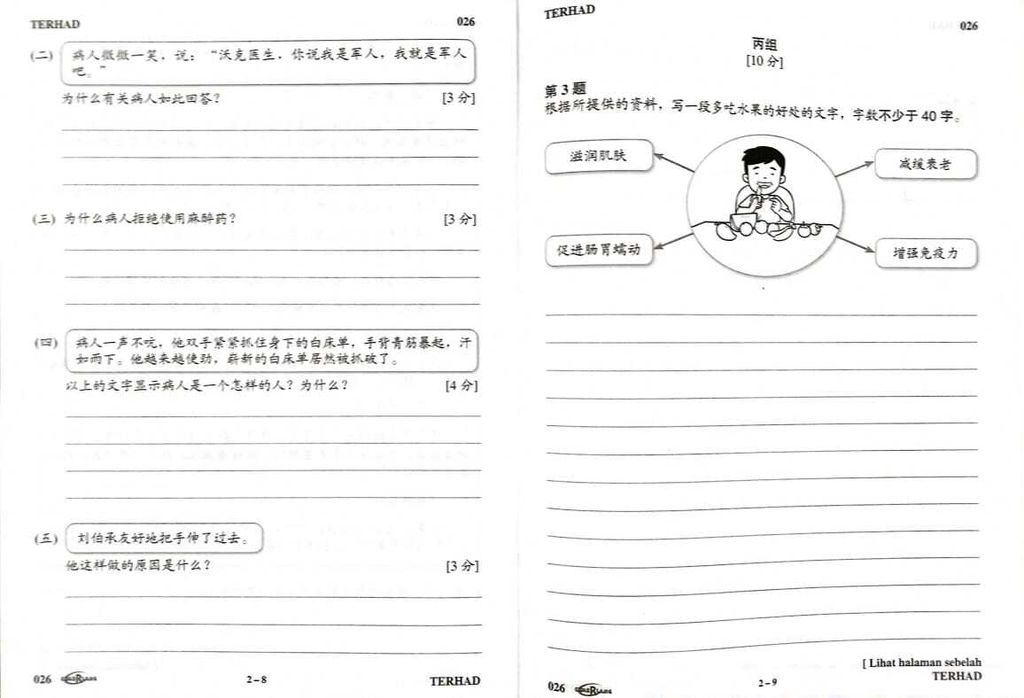 TERHAD
026
(二)
病人微微一笑，说：“沃克医生，你说我是军人，我就是军人
吧。”
为什么有关病人如此回答？ [3 分]
(三) 为什么病人拒绝使用麻醉药？ [3 分]
(四)
病人一声不吭，他双手紧紧抓住身下的白床单，手背青筋暴起，汗
如雨下。他越来越使劲，崭新的白床单居然被抓破了。
以上的文字显示病人是一个怎样的人？为什么？ [4 分]
(五)
刘伯承友好地把手伸了过去。
他这样做的原因是什么？ [3 分]
026
2－8
TERHAD
TERHAD
026
丙组
[10 分]
第 3 题
根据所提供的资料，写一段多吃水果的好处的文字，字数不少于 40 字。
滋润肌肤
减缓衰老
促进肠胃蠕动
增强免疫力
[ Lihat halaman sebelah
026
2－9
TERHAD